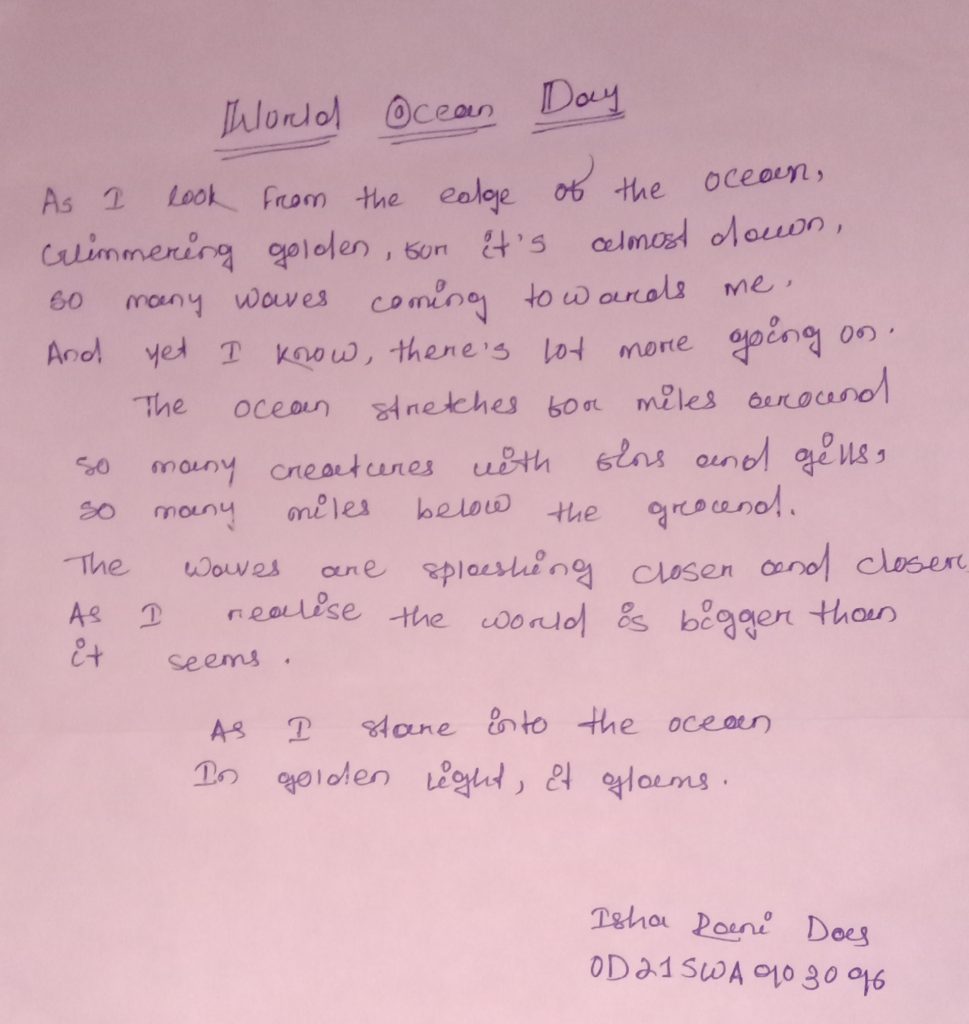 World Ocean Day
As I look from the edge of the ocean,
Glimmering golden, for it's almost dawn,
so many waves coming towards me.
And yet I know, there's lot more going on.
The ocean stretches for miles around
so many creatures with fins and gills,
so many miles below the ground.
The waves are splashing closer and closer
As I realise the world is bigger than
it seems.
As I stare into the ocean
In golden light, it glams.
Isha Rani Das
OD21SWA903096